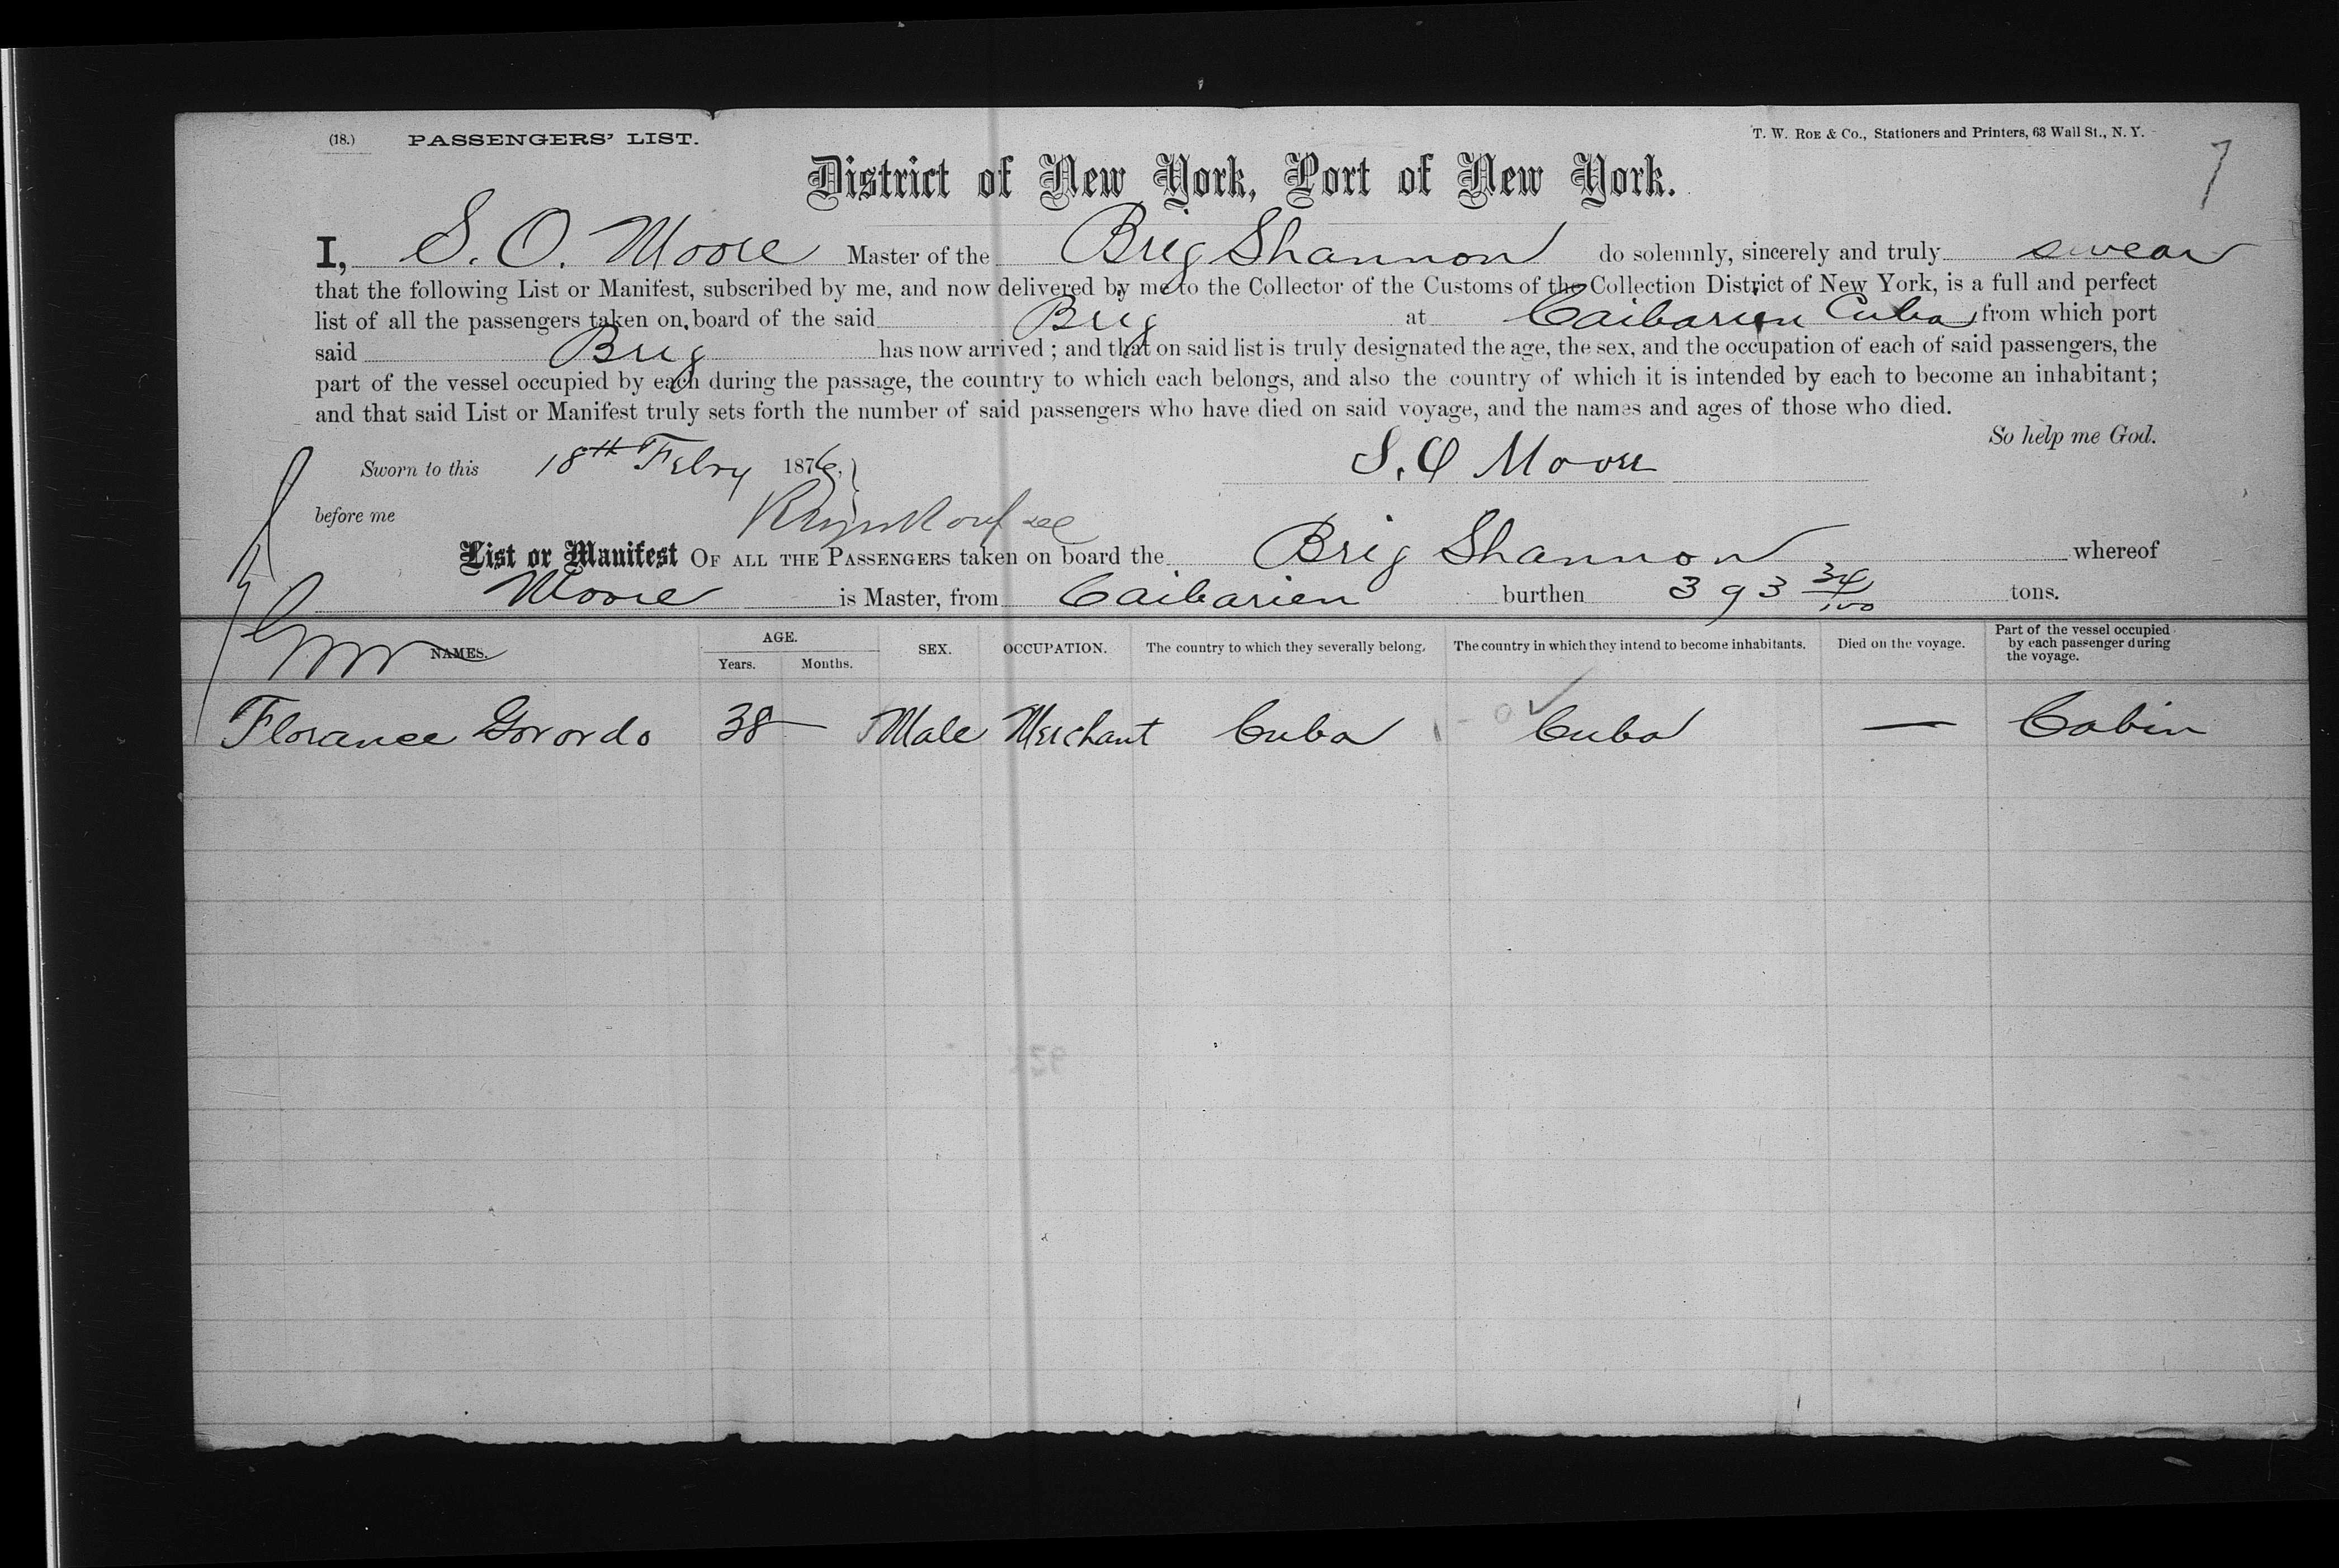 (18.) PASSENGERS' LIST. T. W. ROE & CO., Stationers and Printers, 63 Wall St., N. Y.
7
District of New York, Port of New York.
I, S. O. Moore Master of the Brig Shannon do solemnly, sincerely and truly swear
that the following List or Manifest, subscribed by me, and now delivered by me to the Collector of the Customs of the Collection District of New York, is a full and perfect
list of all the passengers taken on board of the said Brig at Caibarien Cuba from which port
said Brig has now arrived ; and that on said list is truly designated the age, the sex, and the occupation of each of said passengers, the
part of the vessel occupied by each during the passage, the country to which each belongs, and also the country of which it is intended by each to become an inhabitant ;
and that said List or Manifest truly sets forth the number of said passengers who have died on said voyage, and the names and ages of those who died.
So help me God.
Sworn to this 18th Febry 1876, } S. O Moore
before me
List or Manifest OF ALL THE PASSENGERS taken on board the Brig Shannon whereof
Moore is Master, from Caibarien burthen 393 34/100 tons.
NAMES. AGE. Years. Months. SEX. OCCUPATION. The country to which they severally belong. The country in which they intend to become inhabitants. Died on the voyage. Part of the vessel occupied by each passenger during the voyage.
Florance Gorordo 38 — Male Merchant Cuba Cuba — Cabin